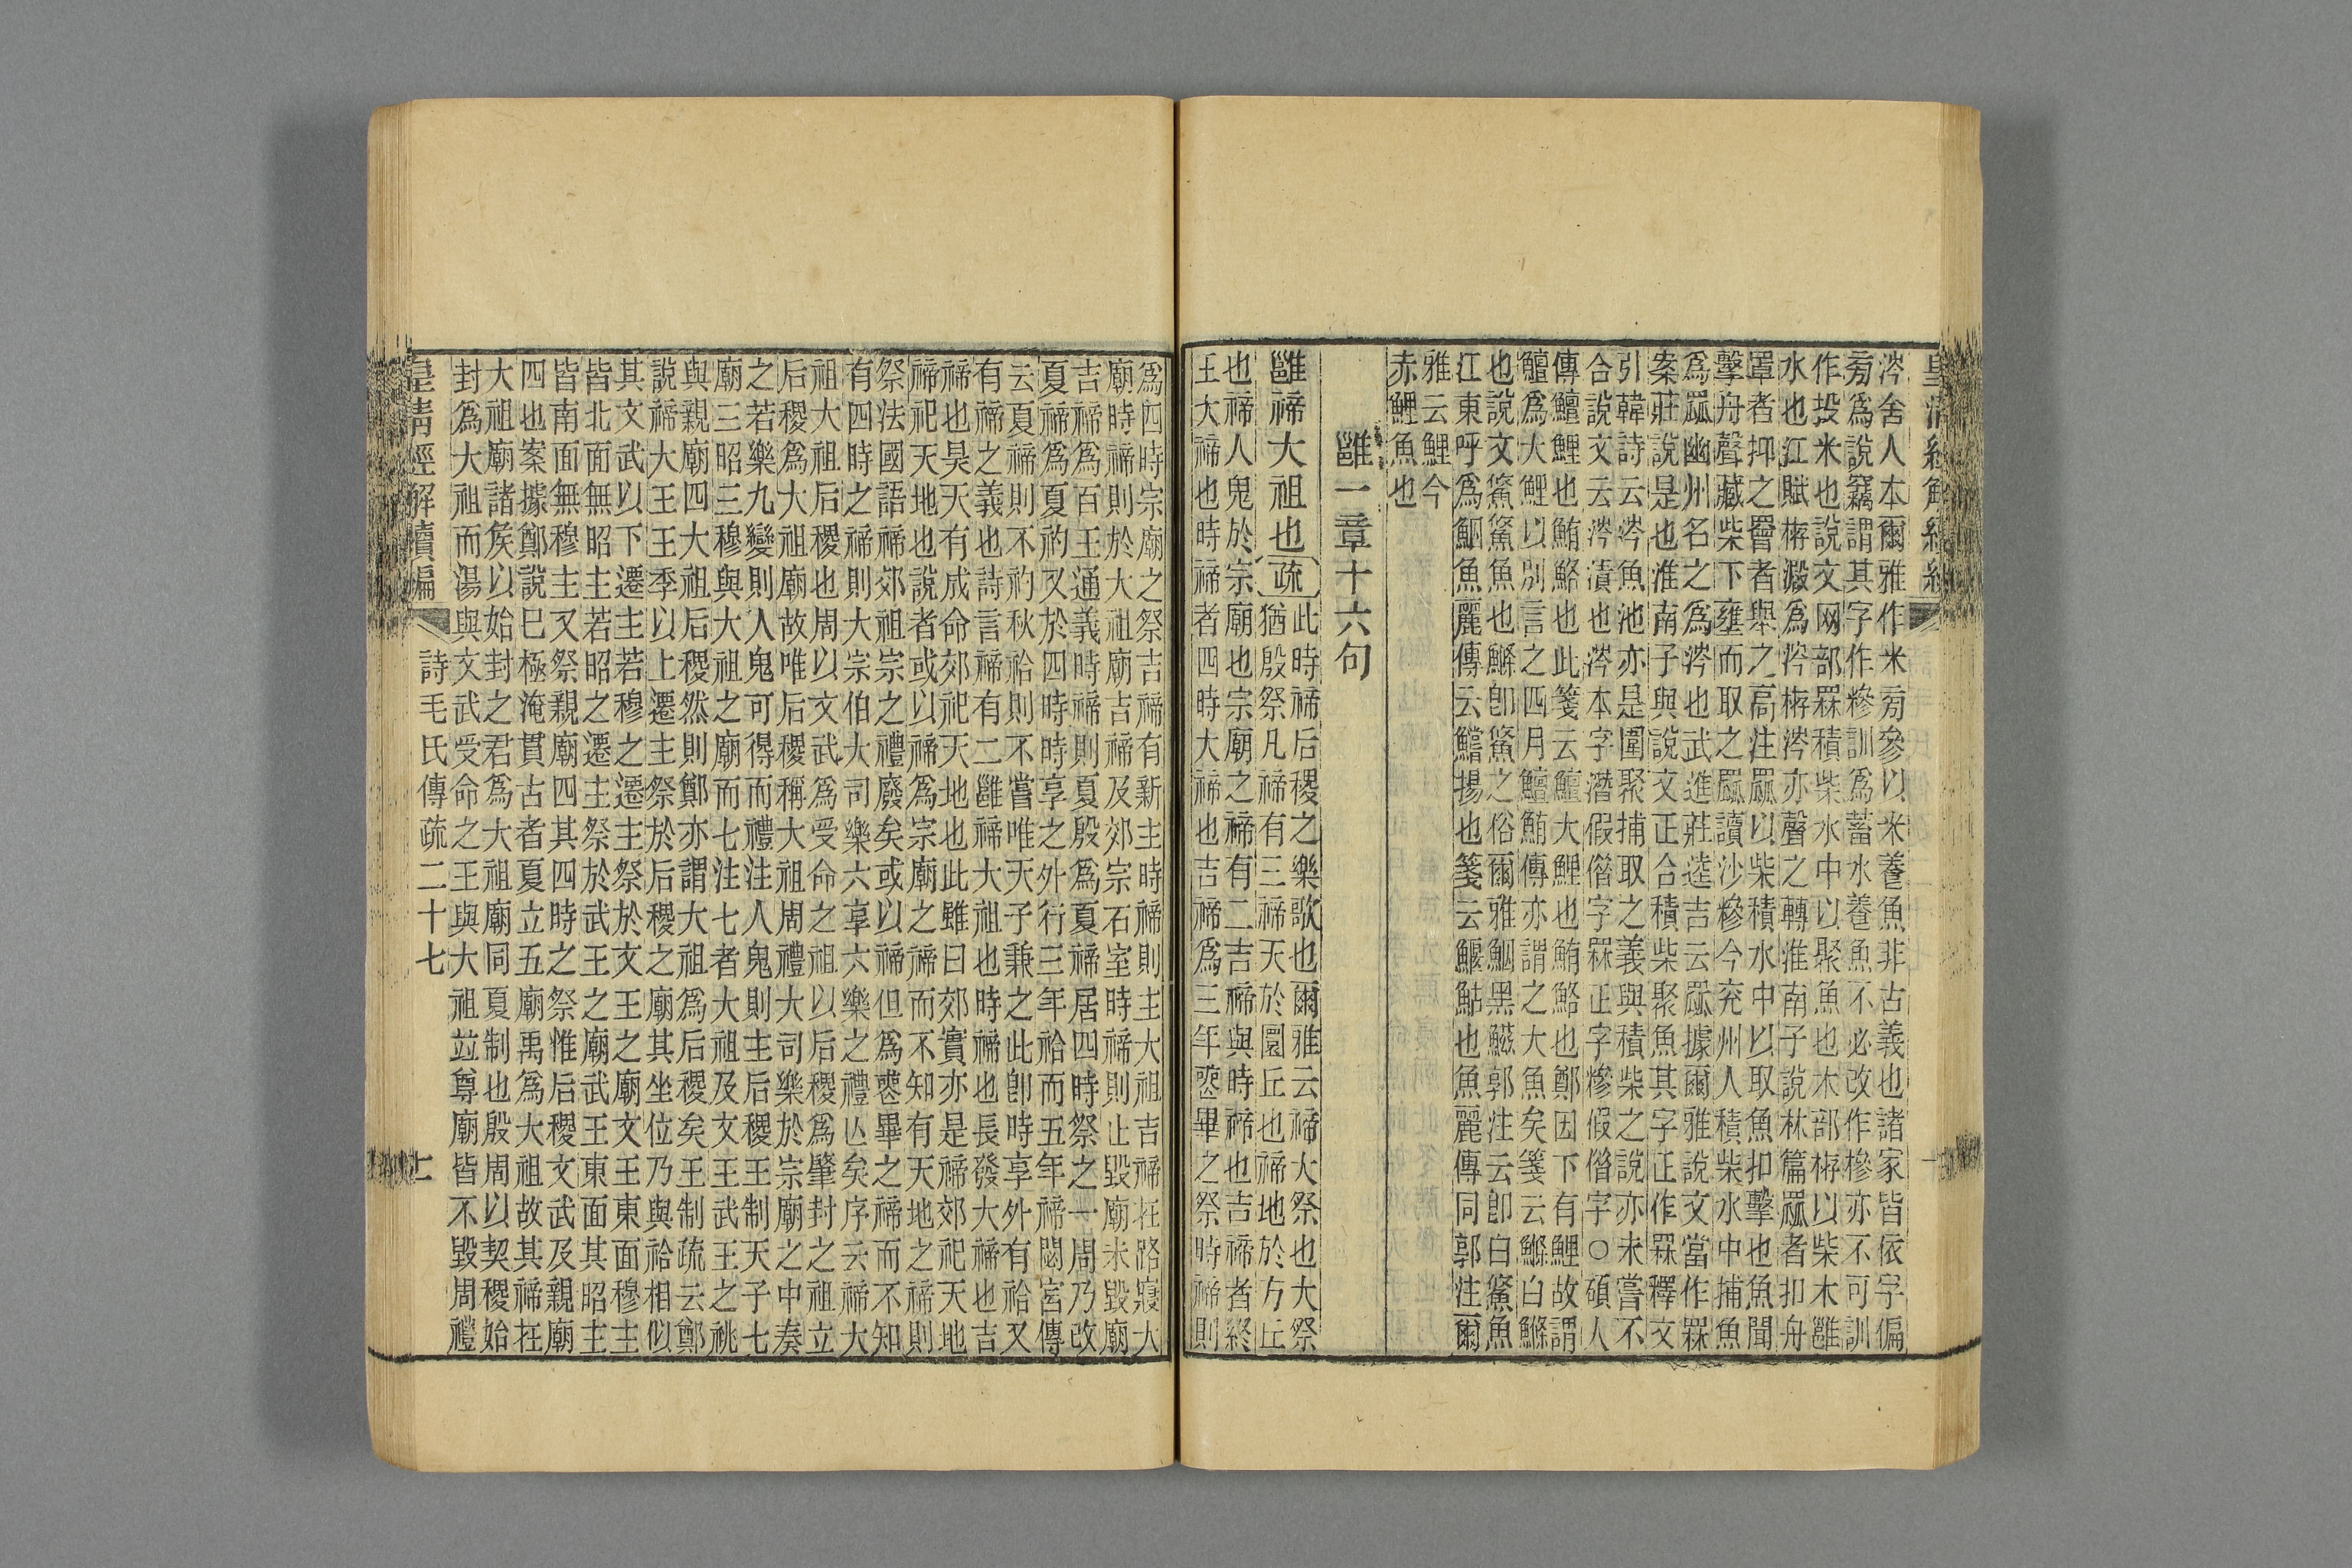 皇清經解續編
涔舍人本爾雅作米旁參以米養魚非古義也諸家皆依字偏
旁爲說竊謂其字作糝訓爲蓄水養魚不必改作椮亦不可訓
作投米也說文网部罧積柴水中以聚魚也木部栫以柴木雝
水也江賦栫澱爲涔栫涔亦聲之轉淮南子說林篇罧者扣舟
罩者抑之罾者舉之高注罧以柴積水中以取魚扣擊也魚聞
擊舟聲藏柴下壅而取之罧讀沙糝今兗州人積柴水中捕魚
爲罧幽州名之爲涔也武進莊逵吉云罧據爾雅說文當作罧
案莊說是也淮南子與說文正合積柴聚魚其字正作罧釋文
引韓詩云涔魚池亦是圍聚捕取之義與積柴之說亦未嘗不
合說文云涔漬也涔本字潛假僭字罧正字糝假僭字○碩人
傳鱣鯉也鮪鮥也此箋云鱣大鯉也鮪鮥也鄭因下有鯉故謂
鱣爲大鯉以別言之四月鱣鮪傳亦謂之大魚矣箋云鰷白鰷
也說文鮺鮺魚也鰷卽鮺之俗爾雅鮂黑鰦郭注云卽白鮺魚
江東呼爲鮂魚麗傳云鱨揚也箋云鰋鮎也魚麗傳同郭注爾
雅云鯉今
赤鯉魚也
雝一章十六句
雝禘大祖也疏
此時禘后稷之樂歌也爾雅云禘大祭也大祭
猶殷祭凡禘有三禘天於圜丘也禘地於方丘
也禘人鬼於宗廟也宗廟之禘有二吉禘與時禘也吉禘者終
王大禘也時禘者四時大禘也吉禘爲三年喪畢之祭時禘則
爲四時宗廟之祭吉禘有新主時禘則主大祖吉禘在路寢大
廟時禘則於大祖廟吉禘及郊宗石室時禘則止毀廟未毀廟
吉禘爲百王通義時禘則夏殷爲夏禘居四時祭之一周乃改
夏禘爲夏礿又於四時時享之外行三年祫而五年禘閟宮傳
云夏禘則不礿秋祫則不嘗唯天子兼之此卽時享外有祫又
有禘之義也詩言禘有二雝禘大祖也時禘也長發大禘也吉
禘也昊天有成命郊祀天地也此雖曰郊實亦是禘郊祀天地
禘祀天地也說者或以禘爲宗廟之禘而不知有天地之禘則
祭法國語禘郊祖宗之禮廢矣或以禘但爲喪畢之禘而不知
有四時之禘則大宗伯大司樂六享六樂之禮亾矣序云禘大
祖大祖后稷也周以文武爲受命之祖以后稷爲肇封之祖立
后稷爲大祖廟故唯后稷稱大祖周禮大司樂於宗廟之中奏
之若樂九變則人鬼可得而禮注人鬼則主后稷王制天子七
廟三昭三穆與大祖之廟而七注七者大祖及文王武王之祧
與親廟四大祖后稷然則鄭亦謂大祖爲后稷矣王制疏云鄭
說禘大王王季以上遷主祭於后稷之廟其坐位乃與祫相似
其文武以下遷主若穆之遷主祭於文王之廟文王東面穆主
皆北面無昭主若昭之遷主祭於武王之廟武王東面其昭主
皆南面無穆主又祭親廟四其四時之祭惟后稷文武及親廟
四也案據鄭說巳極淹貫古者夏立五廟禹爲大祖故其禘在
大祖廟諸矦以始封之君爲大祖廟同夏制也殷周以契稷始
封爲大祖而湯與文武受命之王與大祖竝尊廟皆不毀周禮
皇清經解續編 詩毛氏傳疏二十七 七